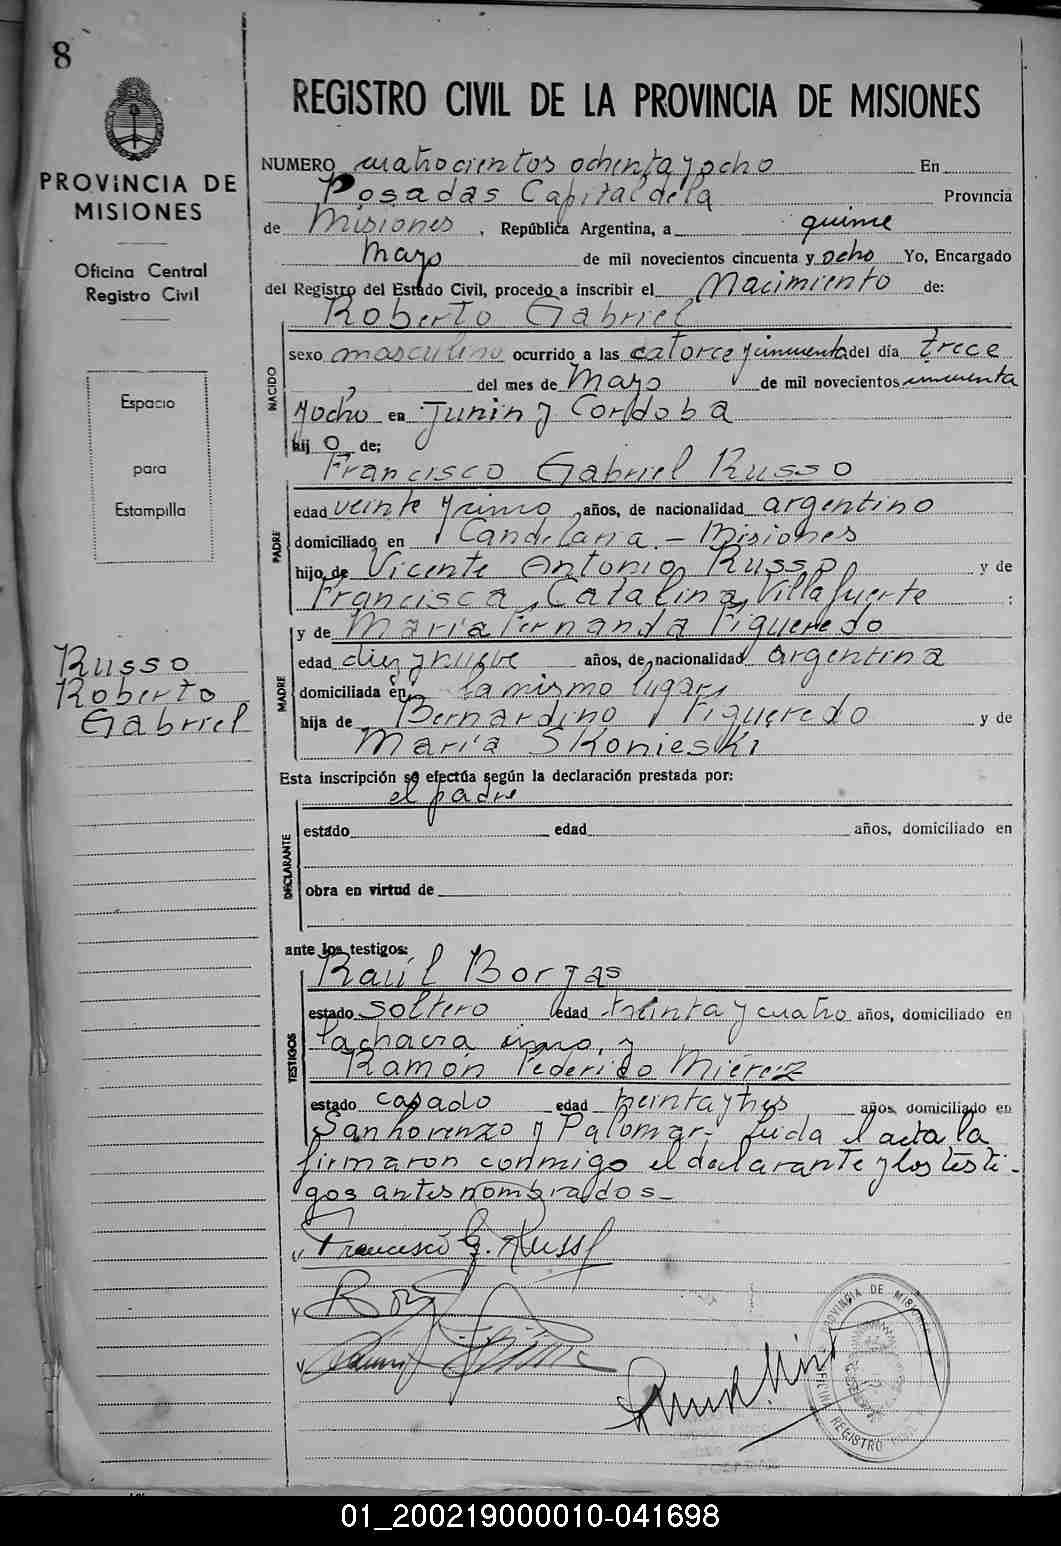 8
PROVINCIA DE
MISIONES
Oficina Central
Registro Civil
Espacio
para
Estampilla
Russo
Roberto
Gabriel
REGISTRO CIVIL DE LA PROVINCIA DE MISIONES
NUMERO cuatrocientos ochenta y ocho En
Posadas Capital de la Provincia
de Misiones, República Argentina, a quince
Mayo de mil novecientos cincuenta y ocho Yo, Encargado
del Registro del Estado Civil, procedo a inscribir el Nacimiento de:
Roberto Gabriel
NACIDO
sexo masculino ocurrido a las catorce y cincuenta del día trece
, del mes de Mayo de mil novecientos cincuenta
y ocho en Junin y Cordoba
hij o de;
Francisco Gabriel Russo
PADRE
edad veinte y cinco años, de nacionalidad argentino
domiciliado en Candelaria - Misiones
hijo de Vicente Antonio Russo y de
Francisca Catalina Villafuerte ;
y de María Fernanda Figueredo
MADRE
edad diez y nueve años, de nacionalidad argentina
domiciliada en la mismo lugar,
hija de Bernardino Figueredo y de
María Skonieski
Esta inscripción se efectúa según la declaración prestada por:
el padre
DECLARANTE
estado edad años, domiciliado en
obra en virtud de
ante los testigos:
Raúl Borjas
TESTIGOS
estado soltero edad treinta y cuatro años, domiciliado en
Lachacra y
Ramón Federico Miérez
estado casado edad treinta y tres años, domiciliado en
San Lorenzo y Palomar- Leida el acta la
firmaron conmigo el declarante y los testi-
gos antes nombrados-
Francisco G. Russo
PROVINCIA DE MISIONES
OFICINA REGISTRO
01_200219000010-041698